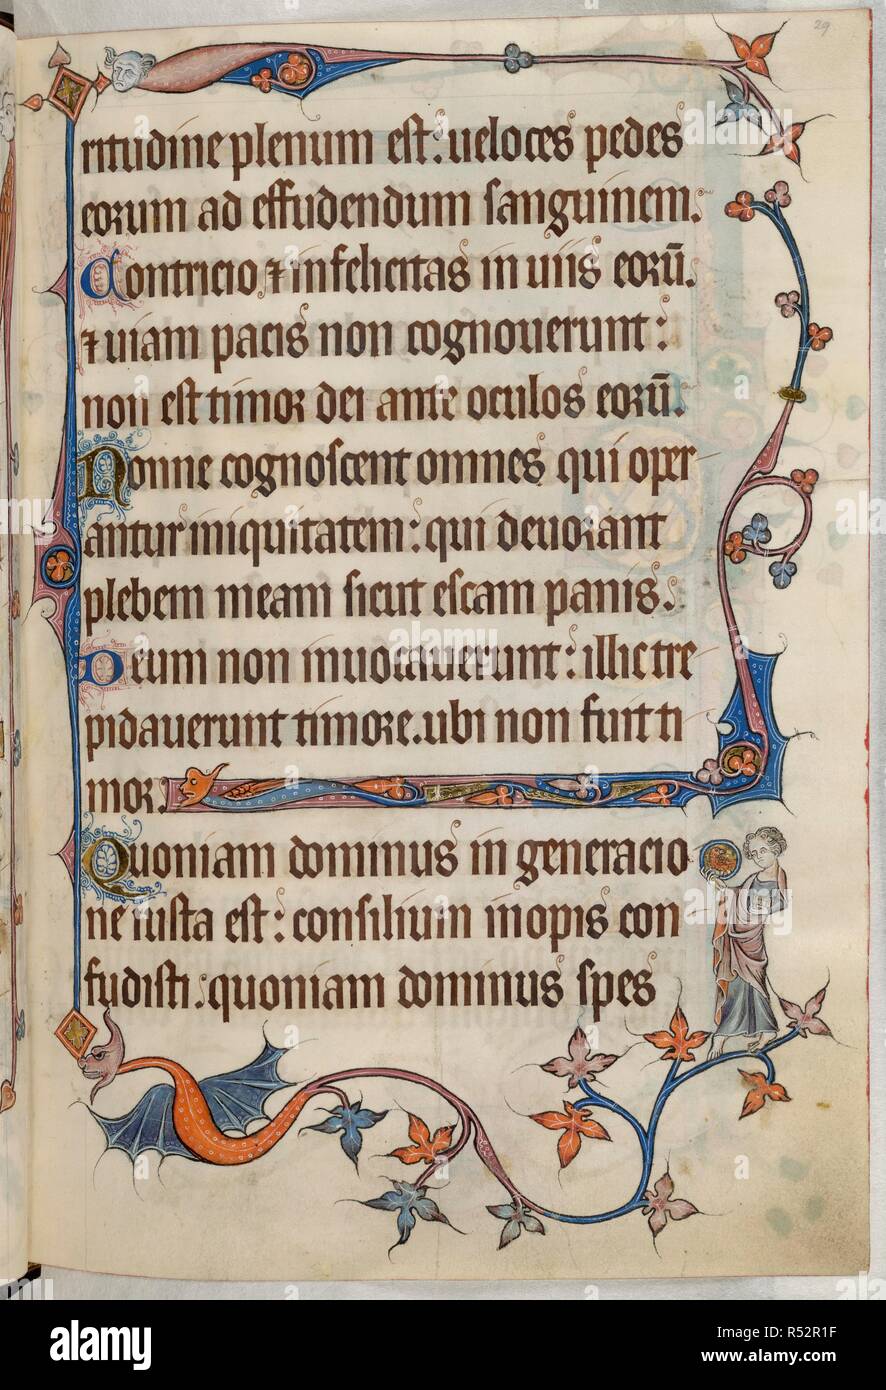 29
ritudine plenum est: ueloces pedes
eorum ad effudendum sanguinem.
Contricio ⁊ infelicitas in uiis eorū.
⁊ uiam pacis non cognouerunt:
non est timor dei ante oculos eorū.
Nonne cognoscent omnes qui oper
antur iniquitatem: qui deuorant
plebem meam sicut escam panis.
Deum non inuocauerunt: illic tre
pidauerunt timore. ubi non fuit ti
mor.
Quoniam dominus in generacio
ne iusta est: consilium inopis con
fudisti. quoniam dominus spes
alamy
alamy
Image ID: R52R1F
www.alamy.com